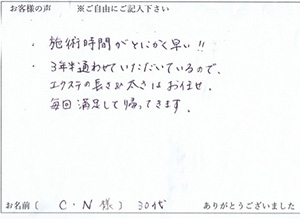 お客様の声 ※ご自由にご記入下さい
・施術時間がとにかく早い!!
・3年半通わせていただいているので、
エクステの長さや太さはお任せ。
毎回満足して帰ってきます。
お名前( C・N様) 30代 ありがとうございました